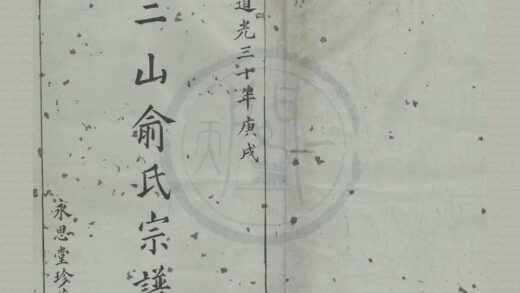 道光三十年庚戌
三山俞氏宗譜
永思堂珍